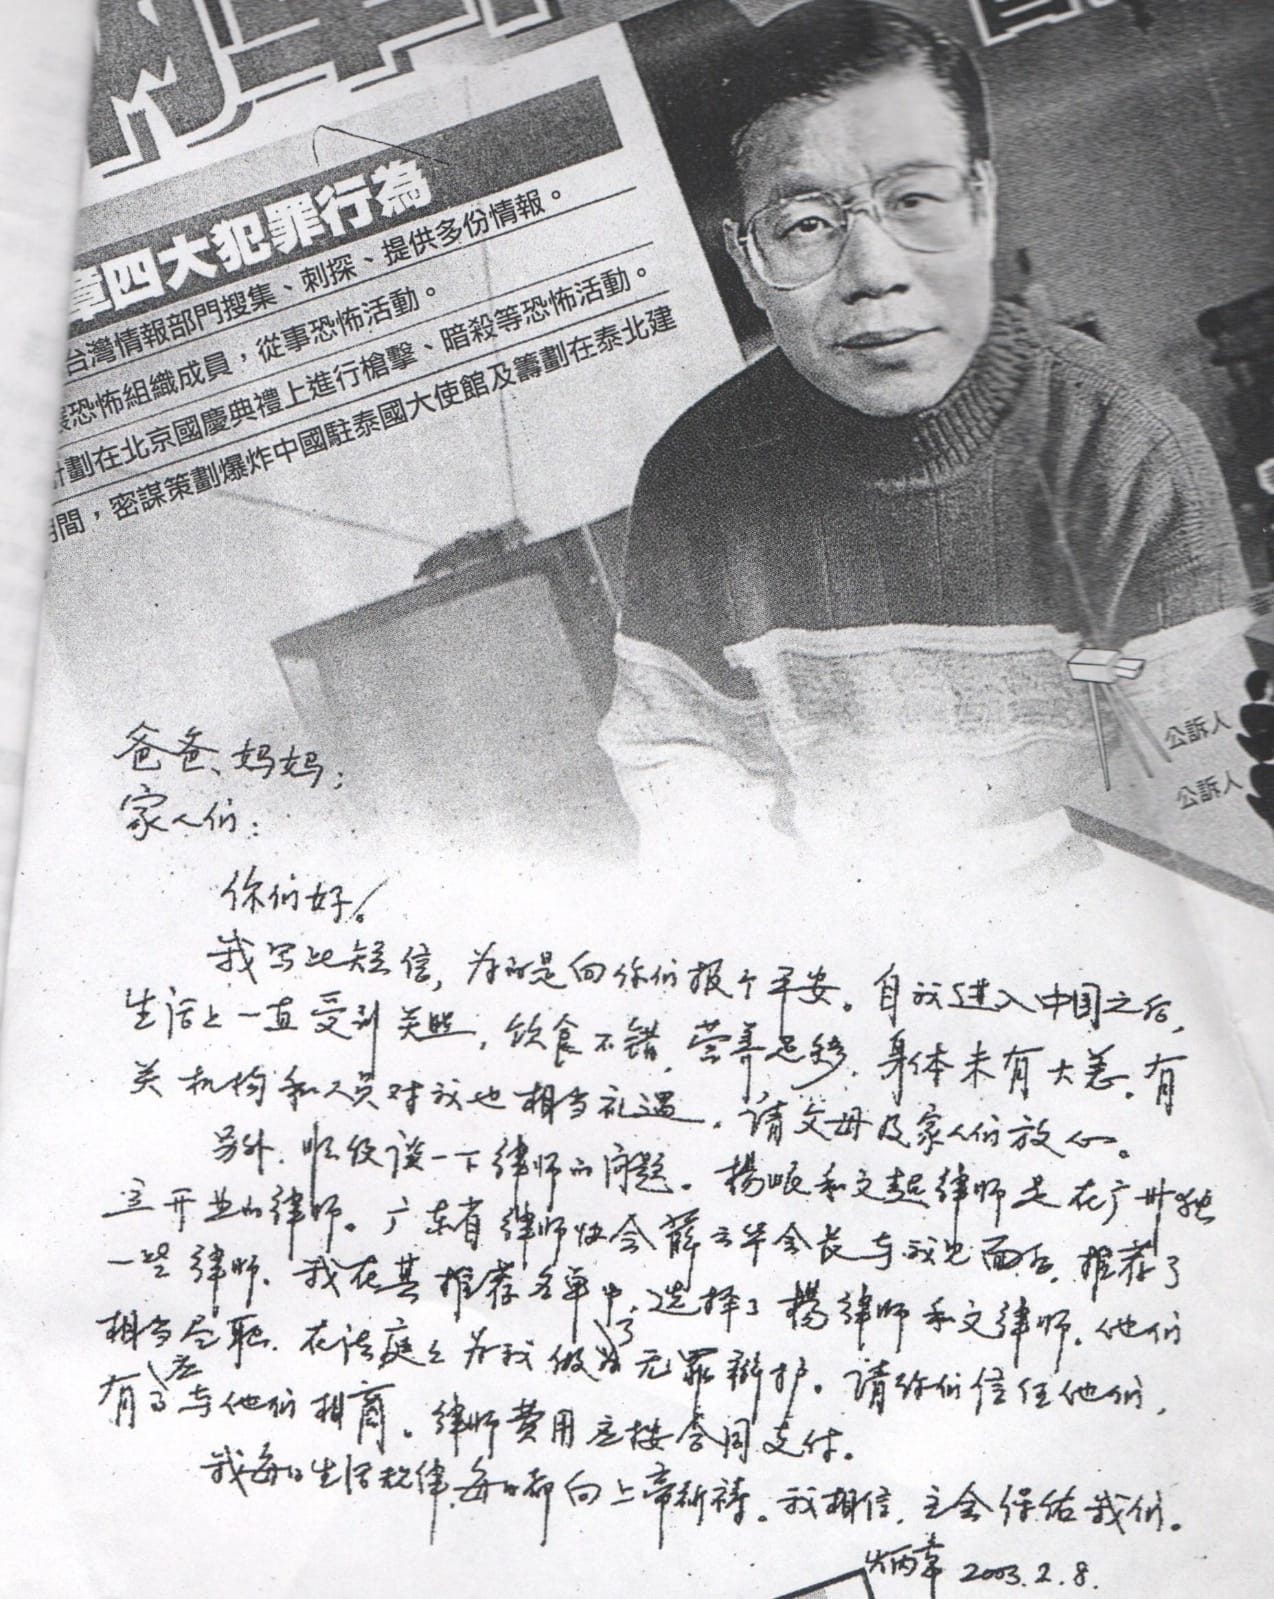 章四大犯罪行為
台灣情報部門搜集、刺探、提供多份情報。
恐怖組織成員，從事恐怖活動。
計劃在北京國慶典禮上進行槍擊、暗殺等恐怖活動。
間，密謀策劃爆炸中國駐泰國大使館及籌劃在泰北建
公訴人
公訴人
爸爸、妈妈：
家人们：
你们好！
我写此短信，为的是向你们报个平安。自我进入中国之后，
生活上一直受到关照，饮食不错，营养足够，身体未有大恙。有
关机构和人员对我也相当礼遇。请父母及家人们放心。
另外，顺便谈一下律师的问题。楊岷和文超律师是在广州独
立开业的律师。广东省律师协会薛云华会长与我见面后，推荐了
一些律师，我在其推荐名单中，选择了楊律师和文律师。他们
相当尽职，在法庭上为我做了无罪辩护。请你们信任他们，
有事应与他们相商。律师费用应按合同支付。
我每日生活规律，每日都向上帝祈祷。我相信，主会保佑我们。
炳章 2003.2.8.